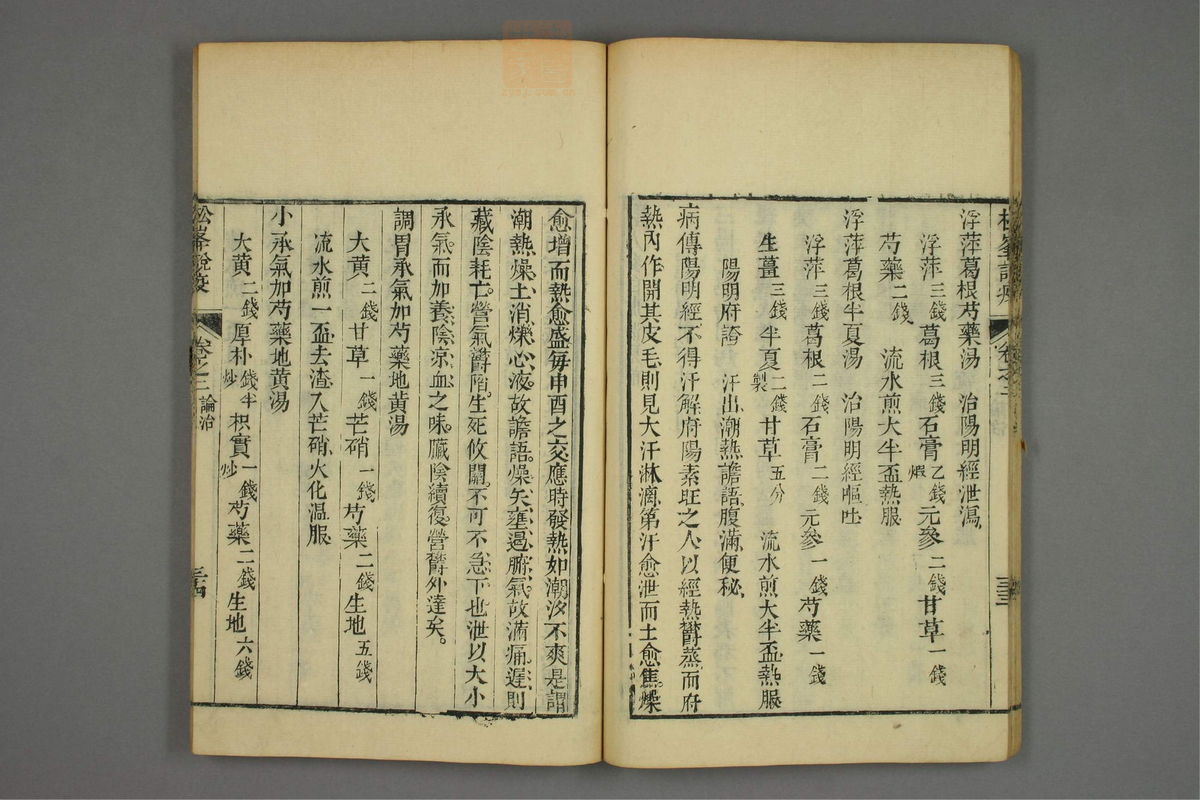 浮萍葛根芍藥湯 治陽明經泄瀉
浮萍三錢 葛根三錢 石膏乙錢煆 元參二錢 甘草一錢
芍藥二錢 流水煎大半盃熱服
浮萍葛根半夏湯 治陽明經嘔吐
浮萍三錢 葛根二錢 石膏二錢 元參一錢 芍藥一錢
生薑三錢 半夏二錢製 甘草五分 流水煎大半盃熱服
陽明府證 汗出潮熱譫語腹滿便秘
病傳陽明經不得汗解府陽素旺之人以經熱鬱蒸而府
熱內作開其皮毛則見大汗淋漓第汗愈泄而土愈焦燥
愈增而熱愈盛每申酉之交應時發熱如潮汐不爽是謂
潮熱燥土消爍心液故譫語燥矢壅遏腑氣故滿痛遲則
藏陰耗亡營氣鬱陷生死攸關不可不急下也泄以大小
承氣而加養陰涼血之味臟陰續復營鬱外達矣
調胃承氣加芍藥地黃湯
大黄二錢 甘草一錢 芒硝一錢 芍藥二錢 生地五錢
流水煎一盃去渣入芒硝火化温服
小承氣加芍藥地黄湯
大黄二錢 厚朴錢半炒 枳實一錢炒 芍藥二錢 生地六錢
松峯說疫 卷之三 論治 三四